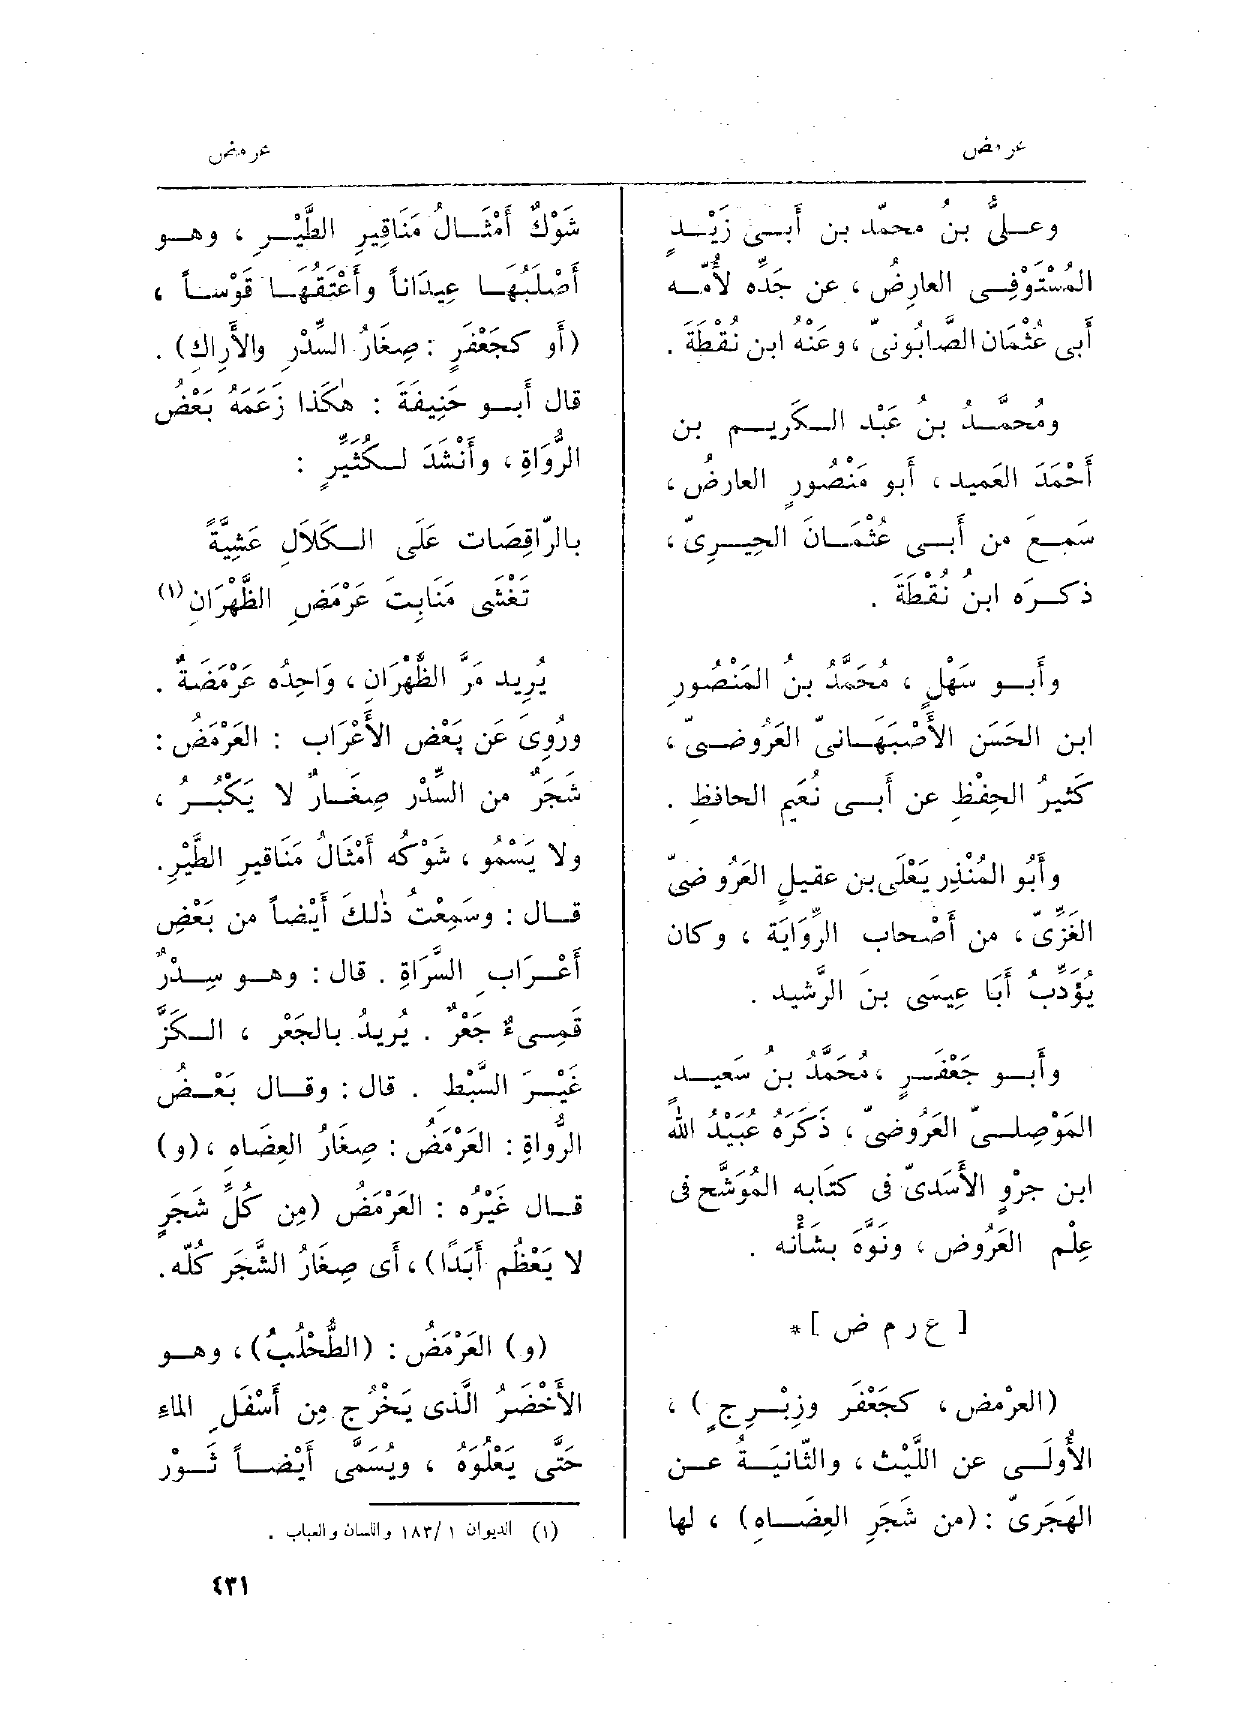 عرمض
عرمض
وعلىُّ بنُ محمّد بن أَبى زَيْدٍ
المُسْتَوْفِى العارِضُ ، عن جَدِّه لأُمِّه
أَبى عُثْمَانَ الصَّابُونىّ ، وعَنْهُ ابن نُقْطَةَ .
ومُحمَّدُ بنُ عَبْدِ الكَرِيمِ بن
أَحْمَدَ العَمِيد ، أَبو مَنْصُورٍ العارِضُ ،
سَمِعَ من أَبى عُثْمَانَ الحِيرِىّ ،
ذكَرَه ابنُ نُقْطَةَ .
وأَبو سَهْلٍ ، مُحَمَّدُ بنُ المَنْصُورِ
ابن الحَسَنِ الأَصْبَهَانىّ العَرُوضِىّ ،
كَثِيرُ الحِفْظِ عن أَبى نُعَيْمٍ الحافِظِ .
وأَبُو المُنْذِرِ يَعْلَى بن عقيلٍ العَرُوضىّ
الغَزِّىّ ، من أَصْحابِ الرِّوَايَة ، وكان
يُؤَدِّبُ أَبَا عِيسَى بنَ الرَّشيد .
وأَبو جَعْفَرٍ ، مُحَمَّدُ بنُ سَعِيدٍ
المَوْصِلىّ العَرُوضىّ ، ذَكَرَهُ عُبَيْدُ اللهِ
ابن جرْوٍ الأَسَدىّ فى كتابِه المُوَشَّح فى
عِلْمِ العَرُوض ، ونَوَّهَ بشَأْنه .
[ ع ر م ض ] *
(العرْمَض ، كجَعْفَر وزِبْرِجٍ ) ،
الأُولَى عن اللَّيْث ، والثّانيَةُ عن
الهَجَرِىّ : (من شَجَرِ العِضَاهِ) ، لها
شَوْكٌ أَمْثَالُ مَنَاقِيرِ الطَّيْرِ ، وهو
أَصْلَبُهَا عِيدَاناً وأَعْتَقُهَا قَوْساً ،
(أَو كجَعْفَرٍ : صِغَارُ السِّدْرِ والأَرَاكِ) .
قال أَبو حَنِيفَةَ : هكَذا زَعَمَهُ بَعْضُ
الرُّوَاةِ ، وأَنْشَدَ لكُثَيِّرٍ :
بالرّاقِصَات عَلَى الكَلَالِ عَشِيَّةً
تَغْشَى مَنَابِتَ عَرْمَضِ الظَّهْرَانِ (١)
يُرِيد مَرَّ الظَّهْرَانِ ، وَاحِدُه عَرْمَضَةٌ .
ورُوِىَ عن بَعْضِ الأَعْرَاب : العَرْمَضُ :
شَجَرٌ من السِّدْرِ صِغَارٌ لا يَكْبُرُ ،
ولا يَسْمُو ، شَوْكُه أَمْثَالُ مَنَاقيرِ الطَّيْرِ.
قال : وسَمِعْتُ ذلكَ أَيْضاً من بَعْضِ
أَعْرَابِ السَّرَاةِ . قال : وهو سِدْرٌ
قَمِىءٌ جَعْرٌ . يُرِيدُ بالجَعْرِ ، الكَزَّ
غَيْرَ السَّبْطِ . قال : وقال بَعْضُ
الرُّواةِ : العَرْمَضُ : صِغَارُ العِضَاهِ ، (و)
قال غَيْرُه : العَرْمَضُ (مِن كُلِّ شَجَرٍ
لا يَعْظُم أَبَدًا) ، أَى صِغَارُ الشَّجَرِ كُلِّه.
(و) العَرْمَضُ : (الطُّحْلُبُ) ، وهو
الأَخْضَرُ الَّذى يَخْرُج مِن أَسْفَلِ الماءِ
حَتَّى يَعْلُوَهُ ، ويُسَمَّى أَيْضاً ثَوْر
(١) الديوان ١ /١٨٣ واللسان والعباب .
٤٣١